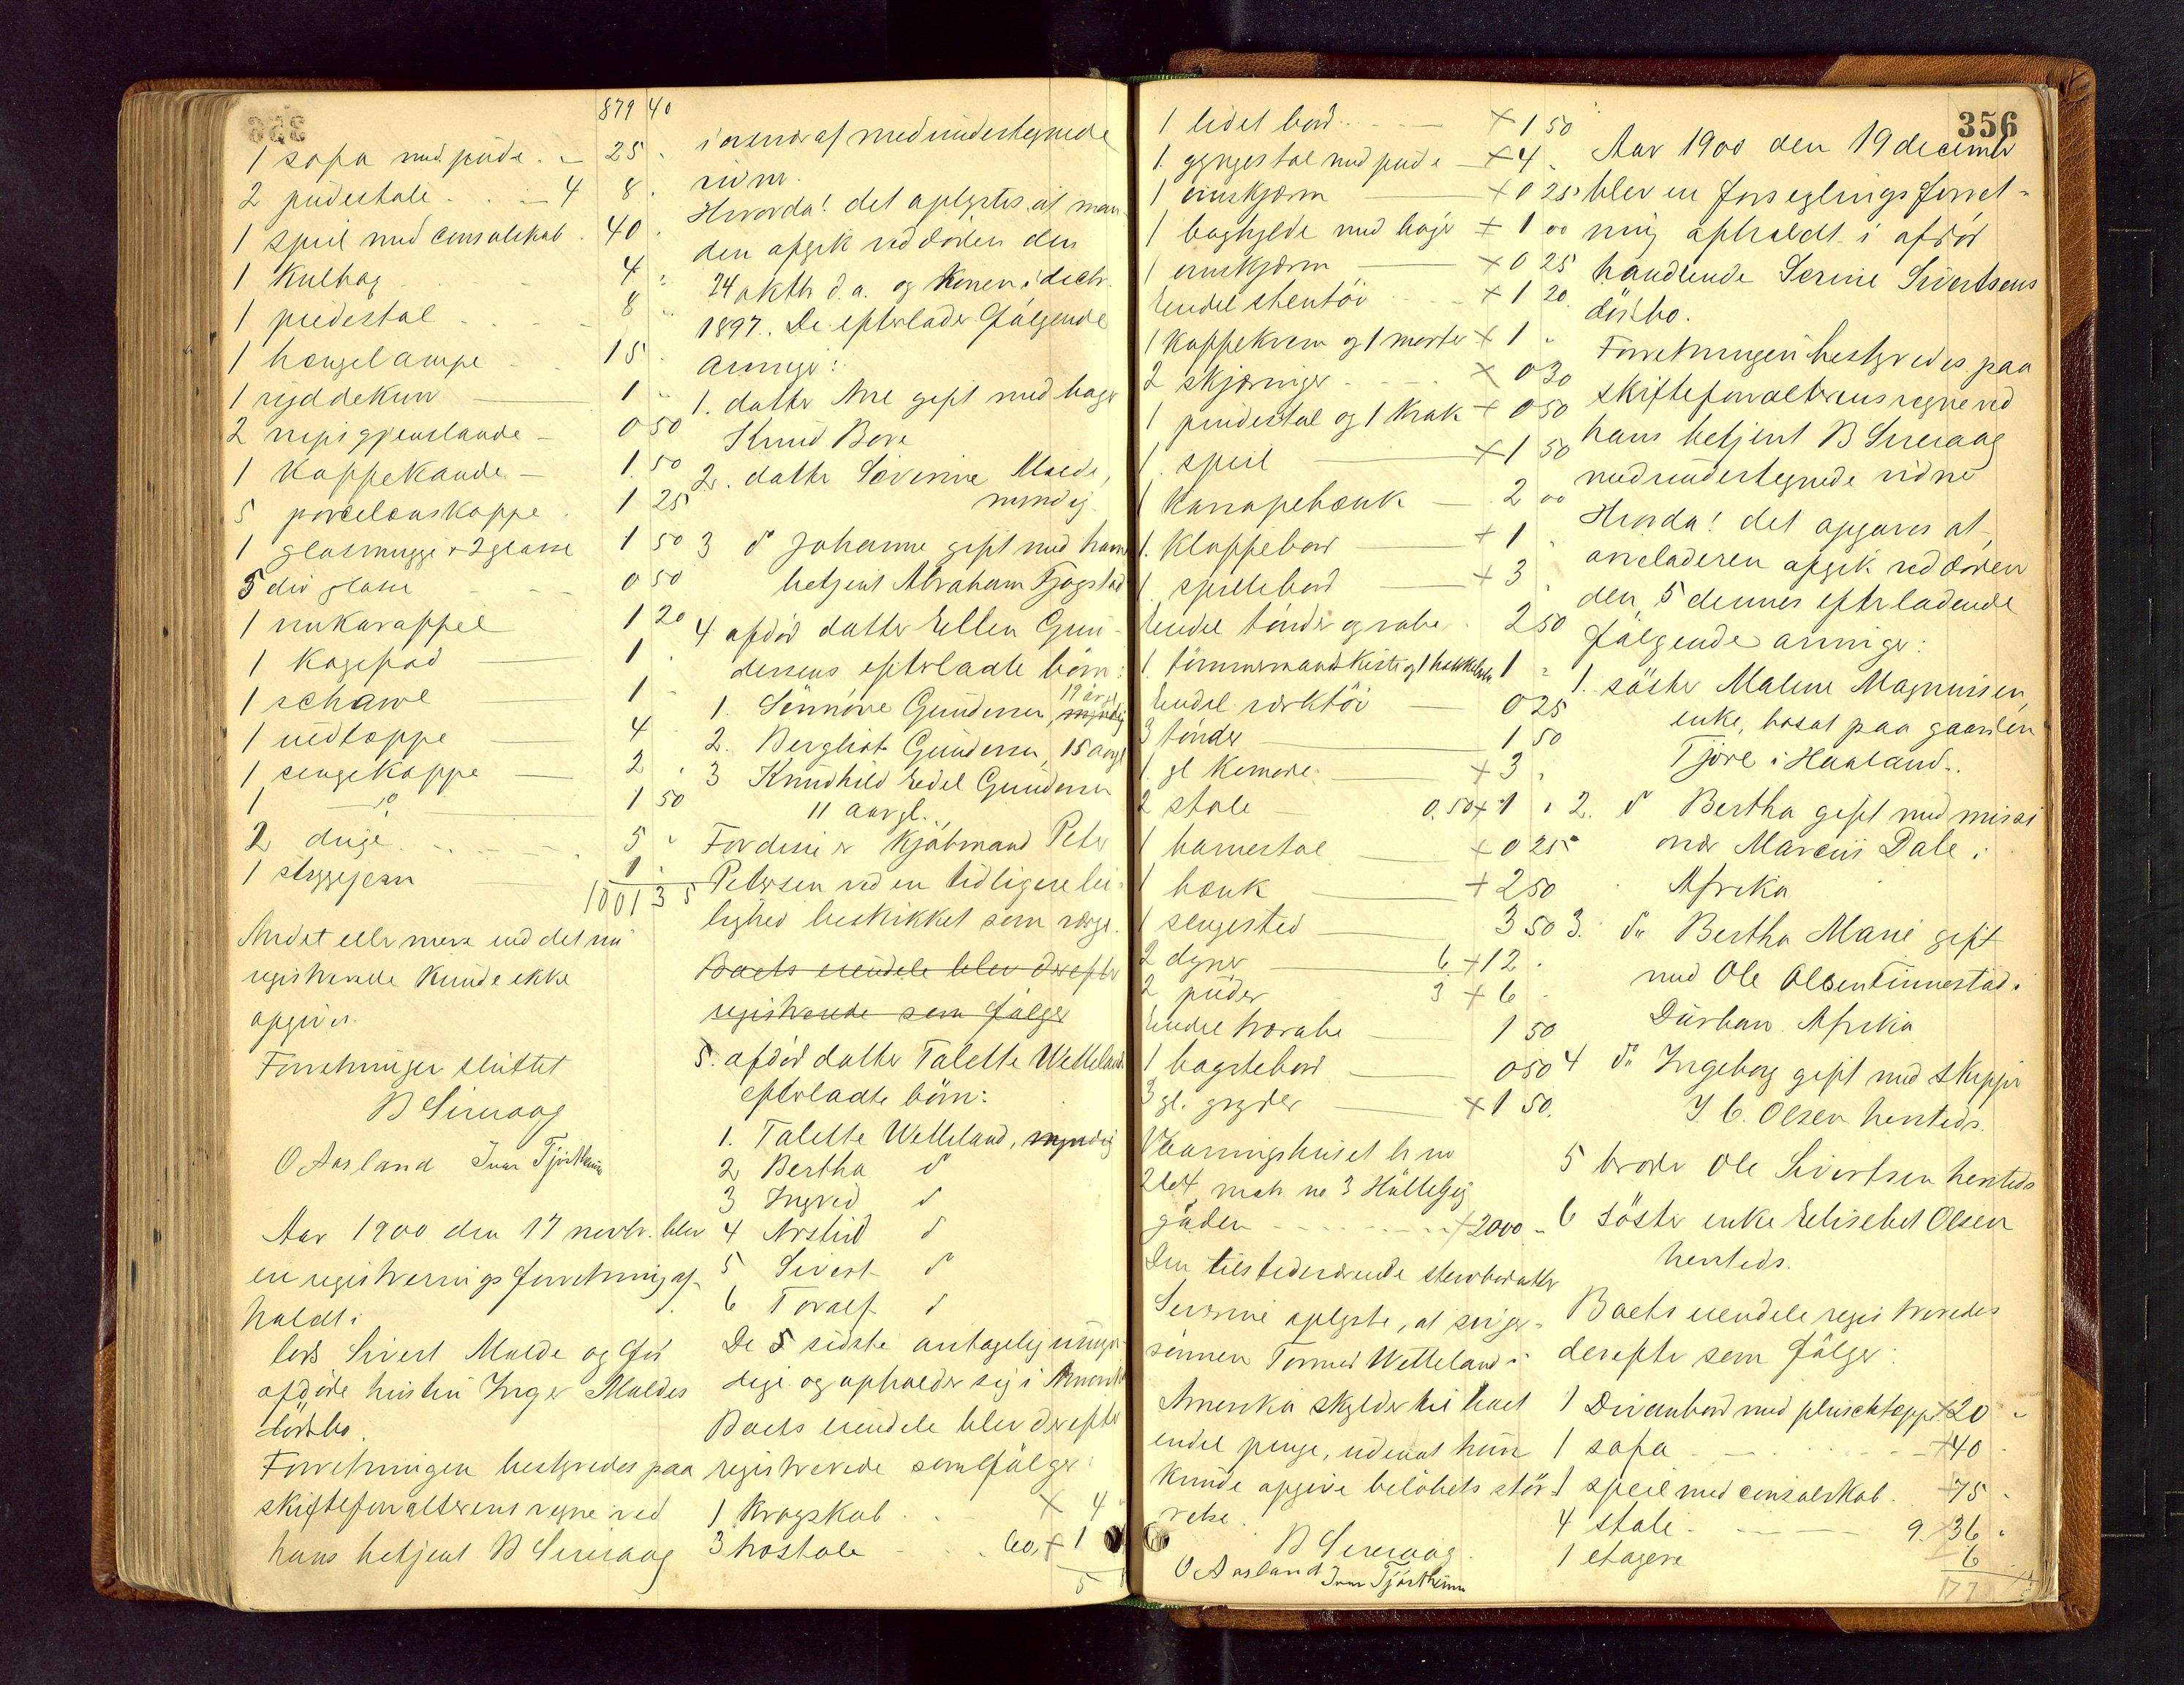 879 40
1 sofa med pude . - 25 .
2 pudestole . . - 4 8 .
1 speil med consolskab . 40 .
1 Kulbox 4 .
1 piedestal - - - 8 .
1 hængelampe - 15 .
1 1 "
2 nips gjenstande - 0 50
1 Kaffekande - 1 50
5 porcelenskoppe . 1 25
1 glasmugge + 2 glasse 1 50
5 div glasse - - - 0 50
1 1 20
1 Kagefad 1 .
1 schawl 1 -
1 4
1 sengetæppe 2 .
1 do 1 50
2 duge . . . . 5 "
1 strygejern 1 .
1001 35
Andet eller mere end det nu
registrerede kunde ikke
opgives.
Forretningen sluttet
B Sireraag
O Aasland Ivar Tjøstheim
Aar 1900 den 17 novbr. blev
en registreringsforretning af-
holdt i
lods Sivert Molde og før
afdøde hustru Inger Moldes
dødsbo.
Forretningen bestyredes paa
skifteforvalterens vegne ved
hans betjent B Sireraag
i overvær af medundertegnede
vidner.
Hvorda! det oplystes, at man-
den afgik ved døden den
24 oktbr d.a. og konen i decbr.
1897. De efterlader følgende
arvinger:
1. datter Ane gift med bager
Knud Bore
2. datter Severine Molde,
myndig.
3 do Johanne gift med ham
betjent Abraham Fjogstad
4 afdød datter Ellen Gun-
dersens efterladte børn:
1. Sennøve Gundersen, 19 aar gl myndig
2. Bergliot Gundersen, 15 aar gl
3 Knudhild Edel Gundersen
11 aar gl.
For disse er kjøbmand Peter
Petersen ved en tidligere lei-
lighed beskikket som værge.
Boets eiendele blev derefter
registrerede som følger
5. afdød datter Talette Wetteland
efterladte børn:
1. Talette Wetteland, myndig
2 Bertha do
3 Ingvid do
4 do
5 Sivert do
6 Toralf do
De 5 sidste antagelig umyn-
dige og opholder sig i Amerika
Boets eiendele blev derefter
registrerede som følger:
1 Krogskab . . x 4 "
3 træstole - . . 60, x 1
5
356
1 lidet bord . . - x 1 50
1 gyngestol med pude - x 4 .
1 ovnskjærm x 0 25
1 boghylde med bøger x 1 00
1 ovnskjærm x 0 25
Endel stentøi x 1 20.
1 kaffekvern og 1 morter x 1 .
2 skjæringer - - x 0 30
1 pindestol og 1 krak x 0 50
1. speil x 1 50
1 kanapebænk - 2 00
1. klappebord x 1 .
1. spillebord x 3 .
Endel tønder og rabe . 2 50
1. tømmermandskiste og 1 1 "
Endel værktøi 0 25
3 tønder 1 50
1. gl Komode . x 3 .
2 stole 0,50 x 1 .
1 barnestol x 0 25
1 bænk x 2 50
1 sengested 3 50
2 dyner 6 x 12 .
2 puder 3 x 6 .
Endel trærabe 1 50
1 bagstebord 0 50
3 gl. gryder x 1 50.
Vaaningshuset br no
264 matr no 3 Hølleby
gaden - - - - x 2000 -
Den tilstedeværende stervbodatter
Severine oplyste, at sviger-
sønnen Wetteland i
Amerika skylder til boet
endel penge, uden at hun
kunde opgive beløbets stør-
relse.
B Sireraag.
O Aasland Ivar Tjøstheim
Aar 1900 den 19 december
blev en forseglingsforret-
ning afholdt i afdød
handlende Serine Sivertsens
dødsbo.
Forretningen bestyredes paa
skifteforvalterens vegne ved
hans betjent B Sireraag
med undertegnede vidne
Hvorda! det opgaves at
arveladeren afgik ved døden
den 5 dennes efterladende
følgende arvinger:
1. søster Malene Magnussen,
enke, bosat paa gaarden
Tjore i Haaland.
2. do Bertha gift med missi
onær Marcus Dale i
Afrika
3. do Bertha Marie gift
med Ole Olsen Finnestad i
Durban Afrika
4 do Ingeborg gift med skipper
J. C. Olsen hersteds.
5 broder Ole Sivertsen hersteds
6 søster enke Elisebet Olsen
hersteds.
Boets eiendele registreredes
derefter som følger:
1 Divanbord med pluschtæppe x 20 "
1 sofa - - - x 40 .
1 speil med consolskab . x 75 .
4 stole - - 9 x 36 .
1 etagere 6
177